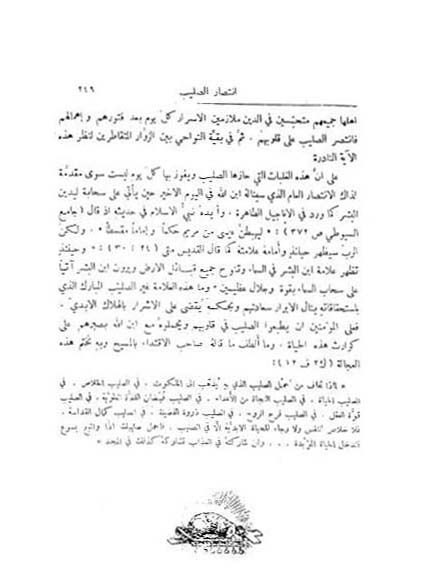 انتصار الصليب ٢٤٩
اهلها جميعهم متحمسين في الدين ملازمين الاسرار كل يوم بعد فتورهم و اهمالهم
فانتصر الصليب على قلوبهم . ثم في بقيّة النواحي بين الزوّار المتقاطرين لنظر هذه
الآية النادرة
على انّ هذه الغلبات التي حازها الصليب ويفوز بها كل يوم ليست سوى مقدّمة
لذاك الانتصار العام الذي سيناله ابن الله في اليوم الاخير حين يأتي على سحابة ليدين
البشر كما ورد في الاناجيل الطاهرة . وأيدهُ نبيّ الاسلام في حديثه اذ قال (جامع
السيوطي ص ٣٧٢) : « ليهبطنّ عيسى بن مريم حكماً وإماماً مقسطاً » . ولكنّ
الربّ سيظهر حينئذٍ وأمامهُ علامتهُ كما قال القديس متى (٢٤ : ٣٠) : « وحينئذٍ
تظهر علامة ابن البشر في السماء وتنوح جميع قبائل الارض ويرون ابن البشر آتياً
على سحاب السماء بقوة وجلال عظيمين » . وما هذه العلامة غير الصليب المبارك الذي
باستحقاقاته ينال الابرار سعادتهم وبحكمه يُقضى على الاشرار بالهلاك الابديّ .
فعلى المؤمنين ان يطبعوا الصليب في قلوبهم ويحملوهُ مع ابن الله بصبرهم على
كوارث هذه الحياة . وما ألطف ما قالهُ صاحب الاقتداء بالمسيح وبهِ نختم هذه
العجالة (ك ٢ ف ١٢) :
« لماذا تخاف من حمل الصليب الذي بهِ يُذهَب الى الملكوت . في الصليب الخلاص . في
الصليب الحياة . في الصليب النجاة من الأعداء . في الصليب فيضان اللذّة العلويّة . في الصليب
قوّة العقل . في الصليب فرح الروح . في الصليب ذروة الفضيلة . في الصليب كمال القداسة .
فلا خلاص للنفس ولا رجاء للحياة الابديّة الّا في الصليب . احمل صليبك اذًا واتبع يسوع
فتدخل الحياة المؤبّدة . . . وان شاركتهُ في العذاب تشاركهُ كذلك في المجد »